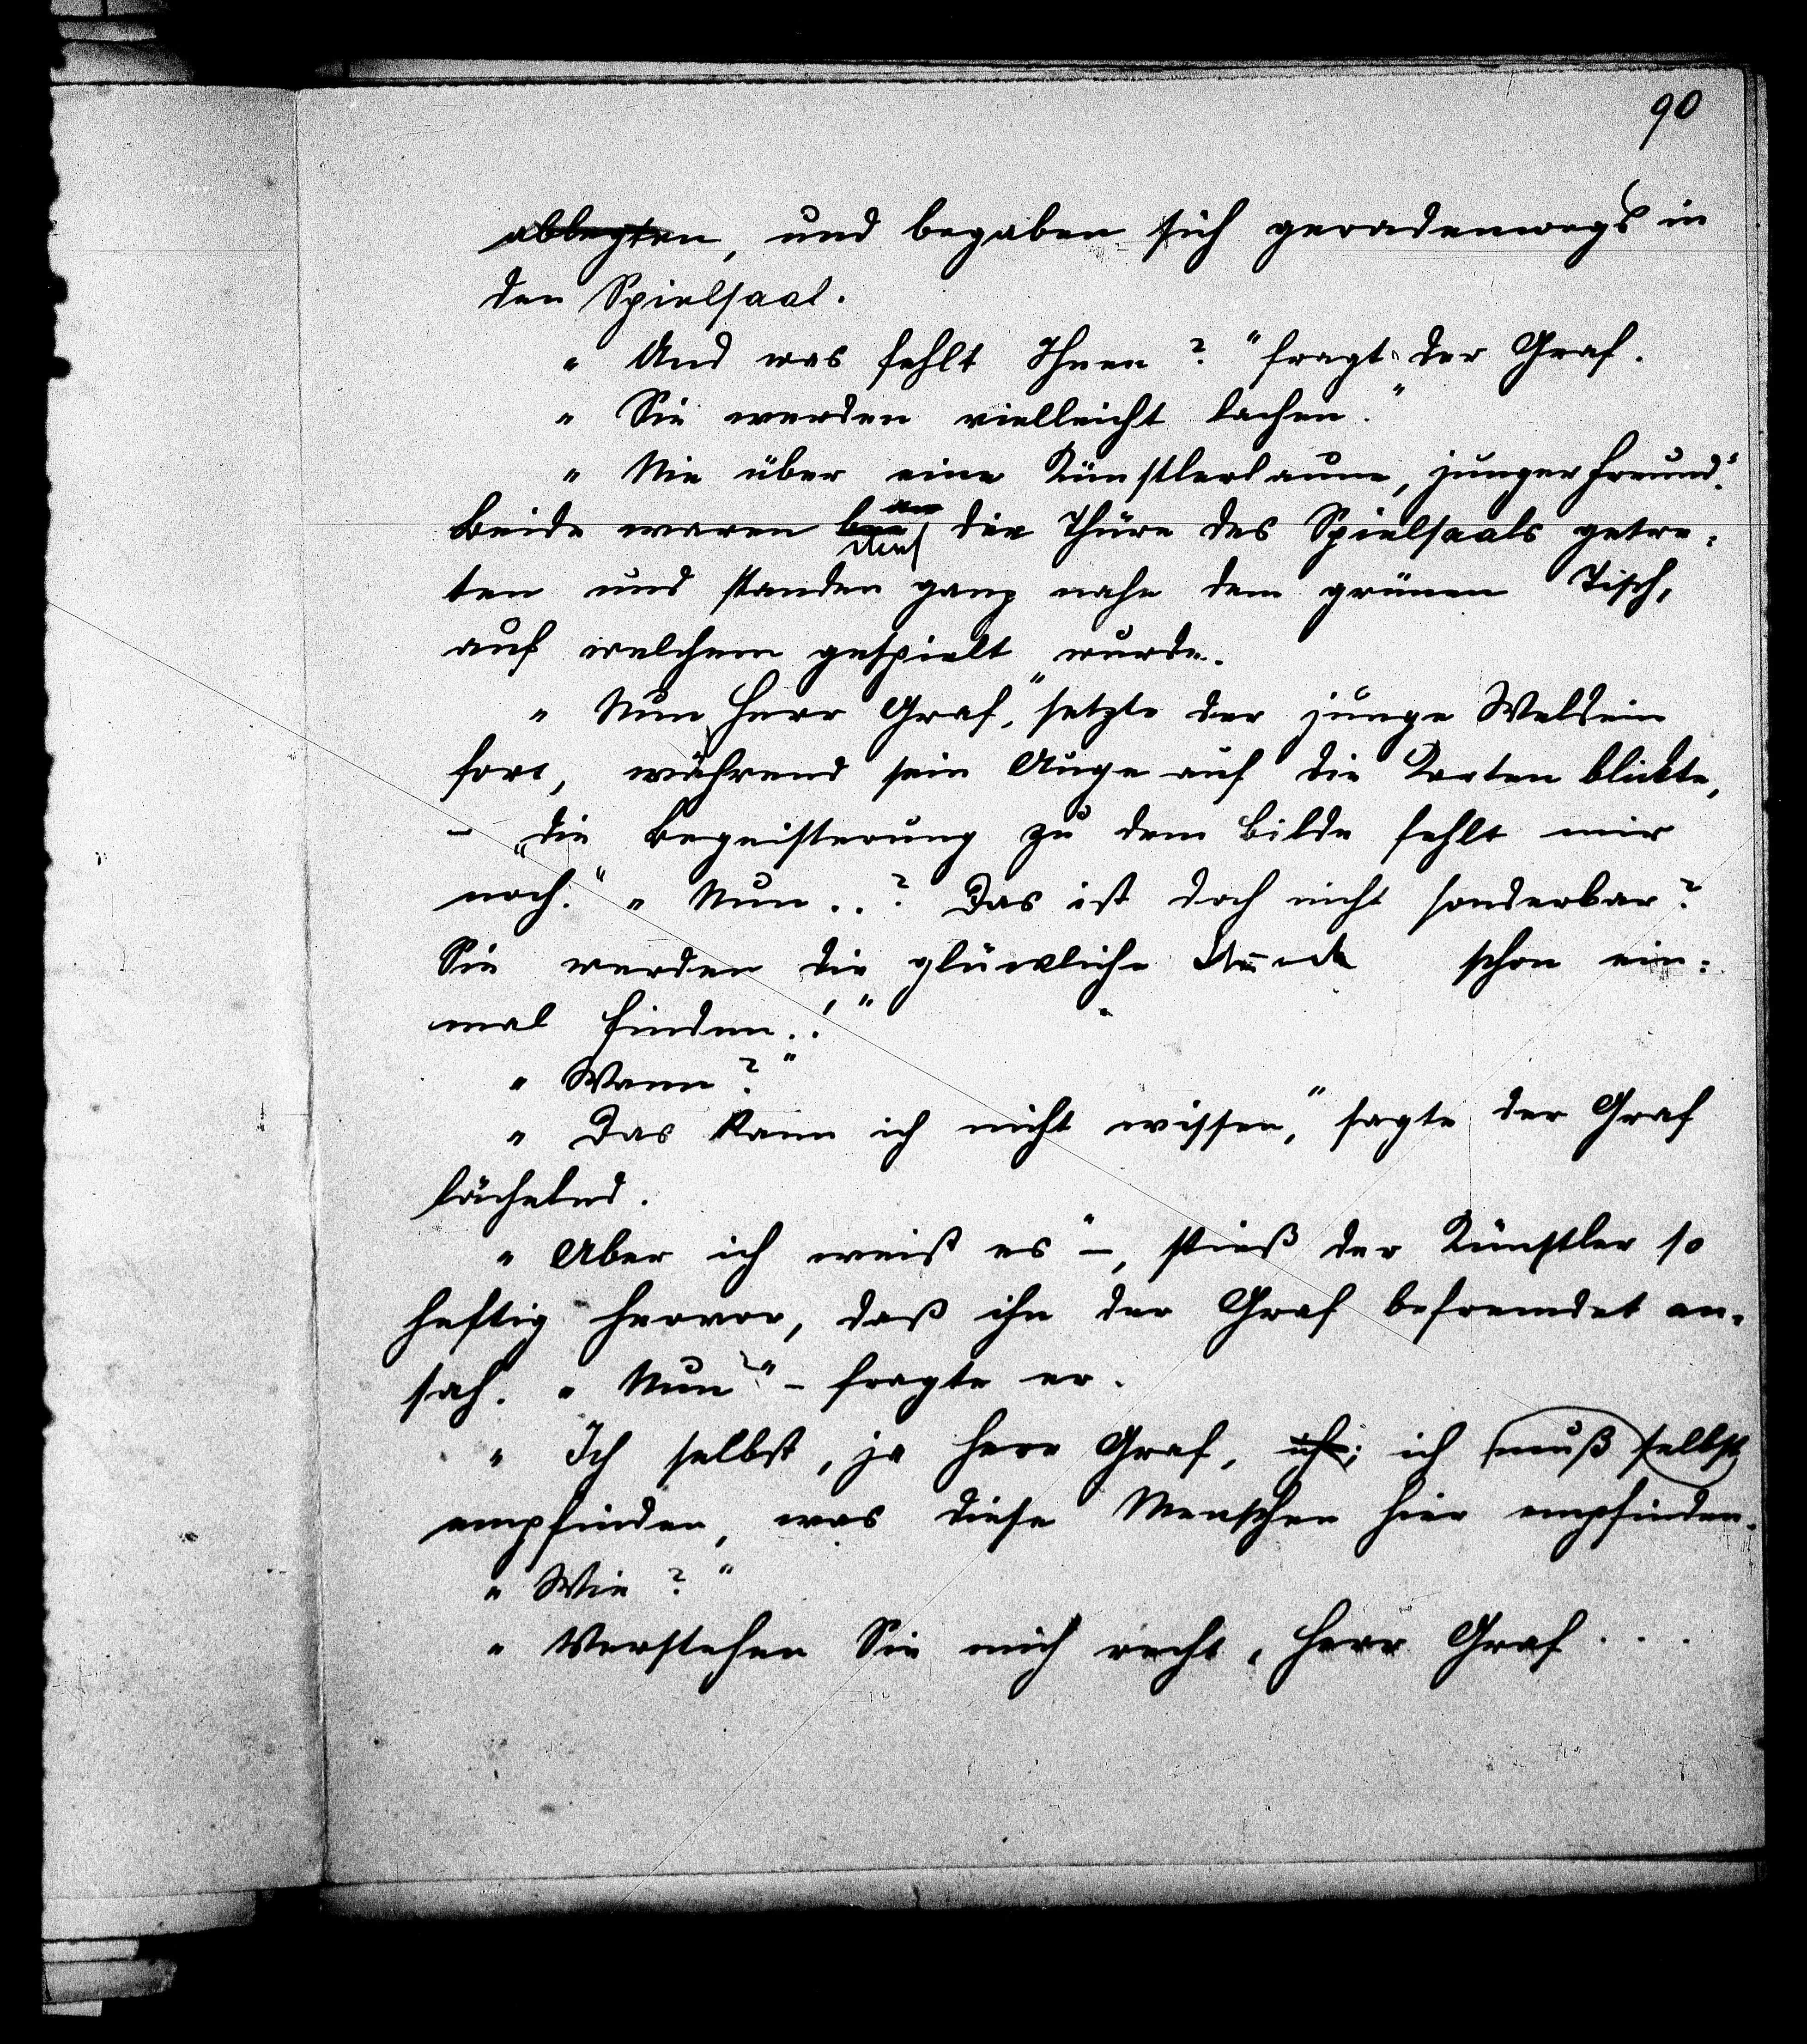 90
ablegten, und begaben sich geradenwegs in
den Spielsaal.
" Und was fehlt Ihnen? " fragt der Graf.
" Sie werden vielleicht lachen. "
" Nie über eine Künstlerlaune, junger Freund. "
Beide waren an durch die Thüre des Spielsaals getre-
ten und standen ganz nahe dem grünen Tisch,
auf welchem gespielt wurde.
" Nun Herr Graf, " setzte der junge Weldein
fort, während sein Auge auf die Karten blickte,
– „die Begeisterung zu dem Bilde fehlt mir
noch. " " Nun..? Das ist doch nicht sonderbar?
Sie werden die glückliche Stunde schon ein-
mal finden.! "
" Wann? "
" Das kann ich nicht wissen, " sagte der Graf
lächelnd.
" Aber ich weiß es " –, stieß der Künstler so
heftig hervor, daß ihn der Graf befremdet an-
sah. " Nun? " – fragte er.
" Ich selbst, ja Herr Graf, ich; ich muß selbst
empfinden, was diese Menschen hier empfinden.
" Wie? "
" Verstehen Sie mich recht, Herr Graf . . .